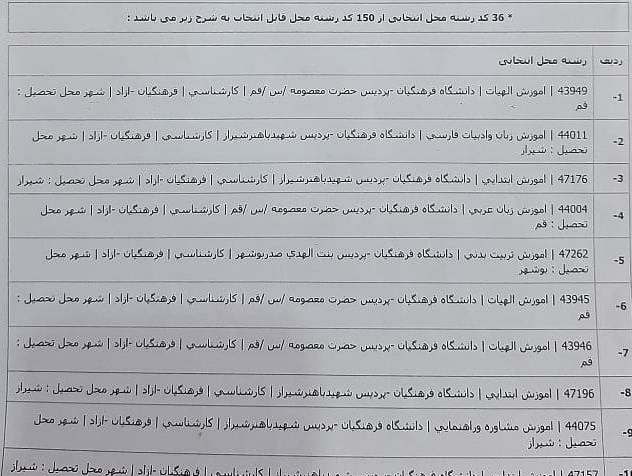 * 36 کد رشته محل انتخابی از 150 کد رشته محل قابل انتخاب به شرح زیر می باشد :
ردیف رشته محل انتخابی
1- 43949 | اموزش الهیات | دانشگاه فرهنگیان -پردیس حضرت معصومه /س /قم | کارشناسي | فرهنگیان -ازاد | شهر محل تحصیل :
قم
2- 44011 | اموزش زبان وادبیات فارسي | دانشگاه فرهنگیان -پردیس شهیدباهنرشیراز | کارشناسي | فرهنگیان -ازاد | شهر محل
تحصیل : شیراز
3- 47176 | اموزش ابتدايي | دانشگاه فرهنگیان -پردیس شهیدباهنرشیراز | کارشناسي | فرهنگیان -ازاد | شهر محل تحصیل : شیراز
4- 44004 | اموزش زبان عربي | دانشگاه فرهنگیان -پردیس حضرت معصومه /س /قم | کارشناسي | فرهنگیان -ازاد | شهر محل
تحصیل : قم
5- 47262 | اموزش تربیت بدني | دانشگاه فرهنگیان -پردیس بنت الهدي صدربوشهر | کارشناسي | فرهنگیان -ازاد | شهر محل
تحصیل : بوشهر
6- 43945 | اموزش الهیات | دانشگاه فرهنگیان -پردیس حضرت معصومه /س /قم | کارشناسي | فرهنگیان -ازاد | شهر محل تحصیل :
قم
7- 43946 | اموزش الهیات | دانشگاه فرهنگیان -پردیس حضرت معصومه /س /قم | کارشناسي | فرهنگیان -ازاد | شهر محل تحصیل :
قم
8- 47196 | اموزش ابتدايي | دانشگاه فرهنگیان -پردیس شهیدباهنرشیراز | کارشناسي | فرهنگیان -ازاد | شهر محل تحصیل : شیراز
9- 44075 | اموزش مشاوره وراهنمايي | دانشگاه فرهنگیان -پردیس شهیدباهنرشیراز | کارشناسي | فرهنگیان -ازاد | شهر محل
تحصیل : شیراز
47157 | اموزش ابتدايي | دانشگاه فرهنگیان -پردیس شهیدباهنرشیراز | کارشناسي | فرهنگیان -ازاد | شهر محل تحصیل : شیراز